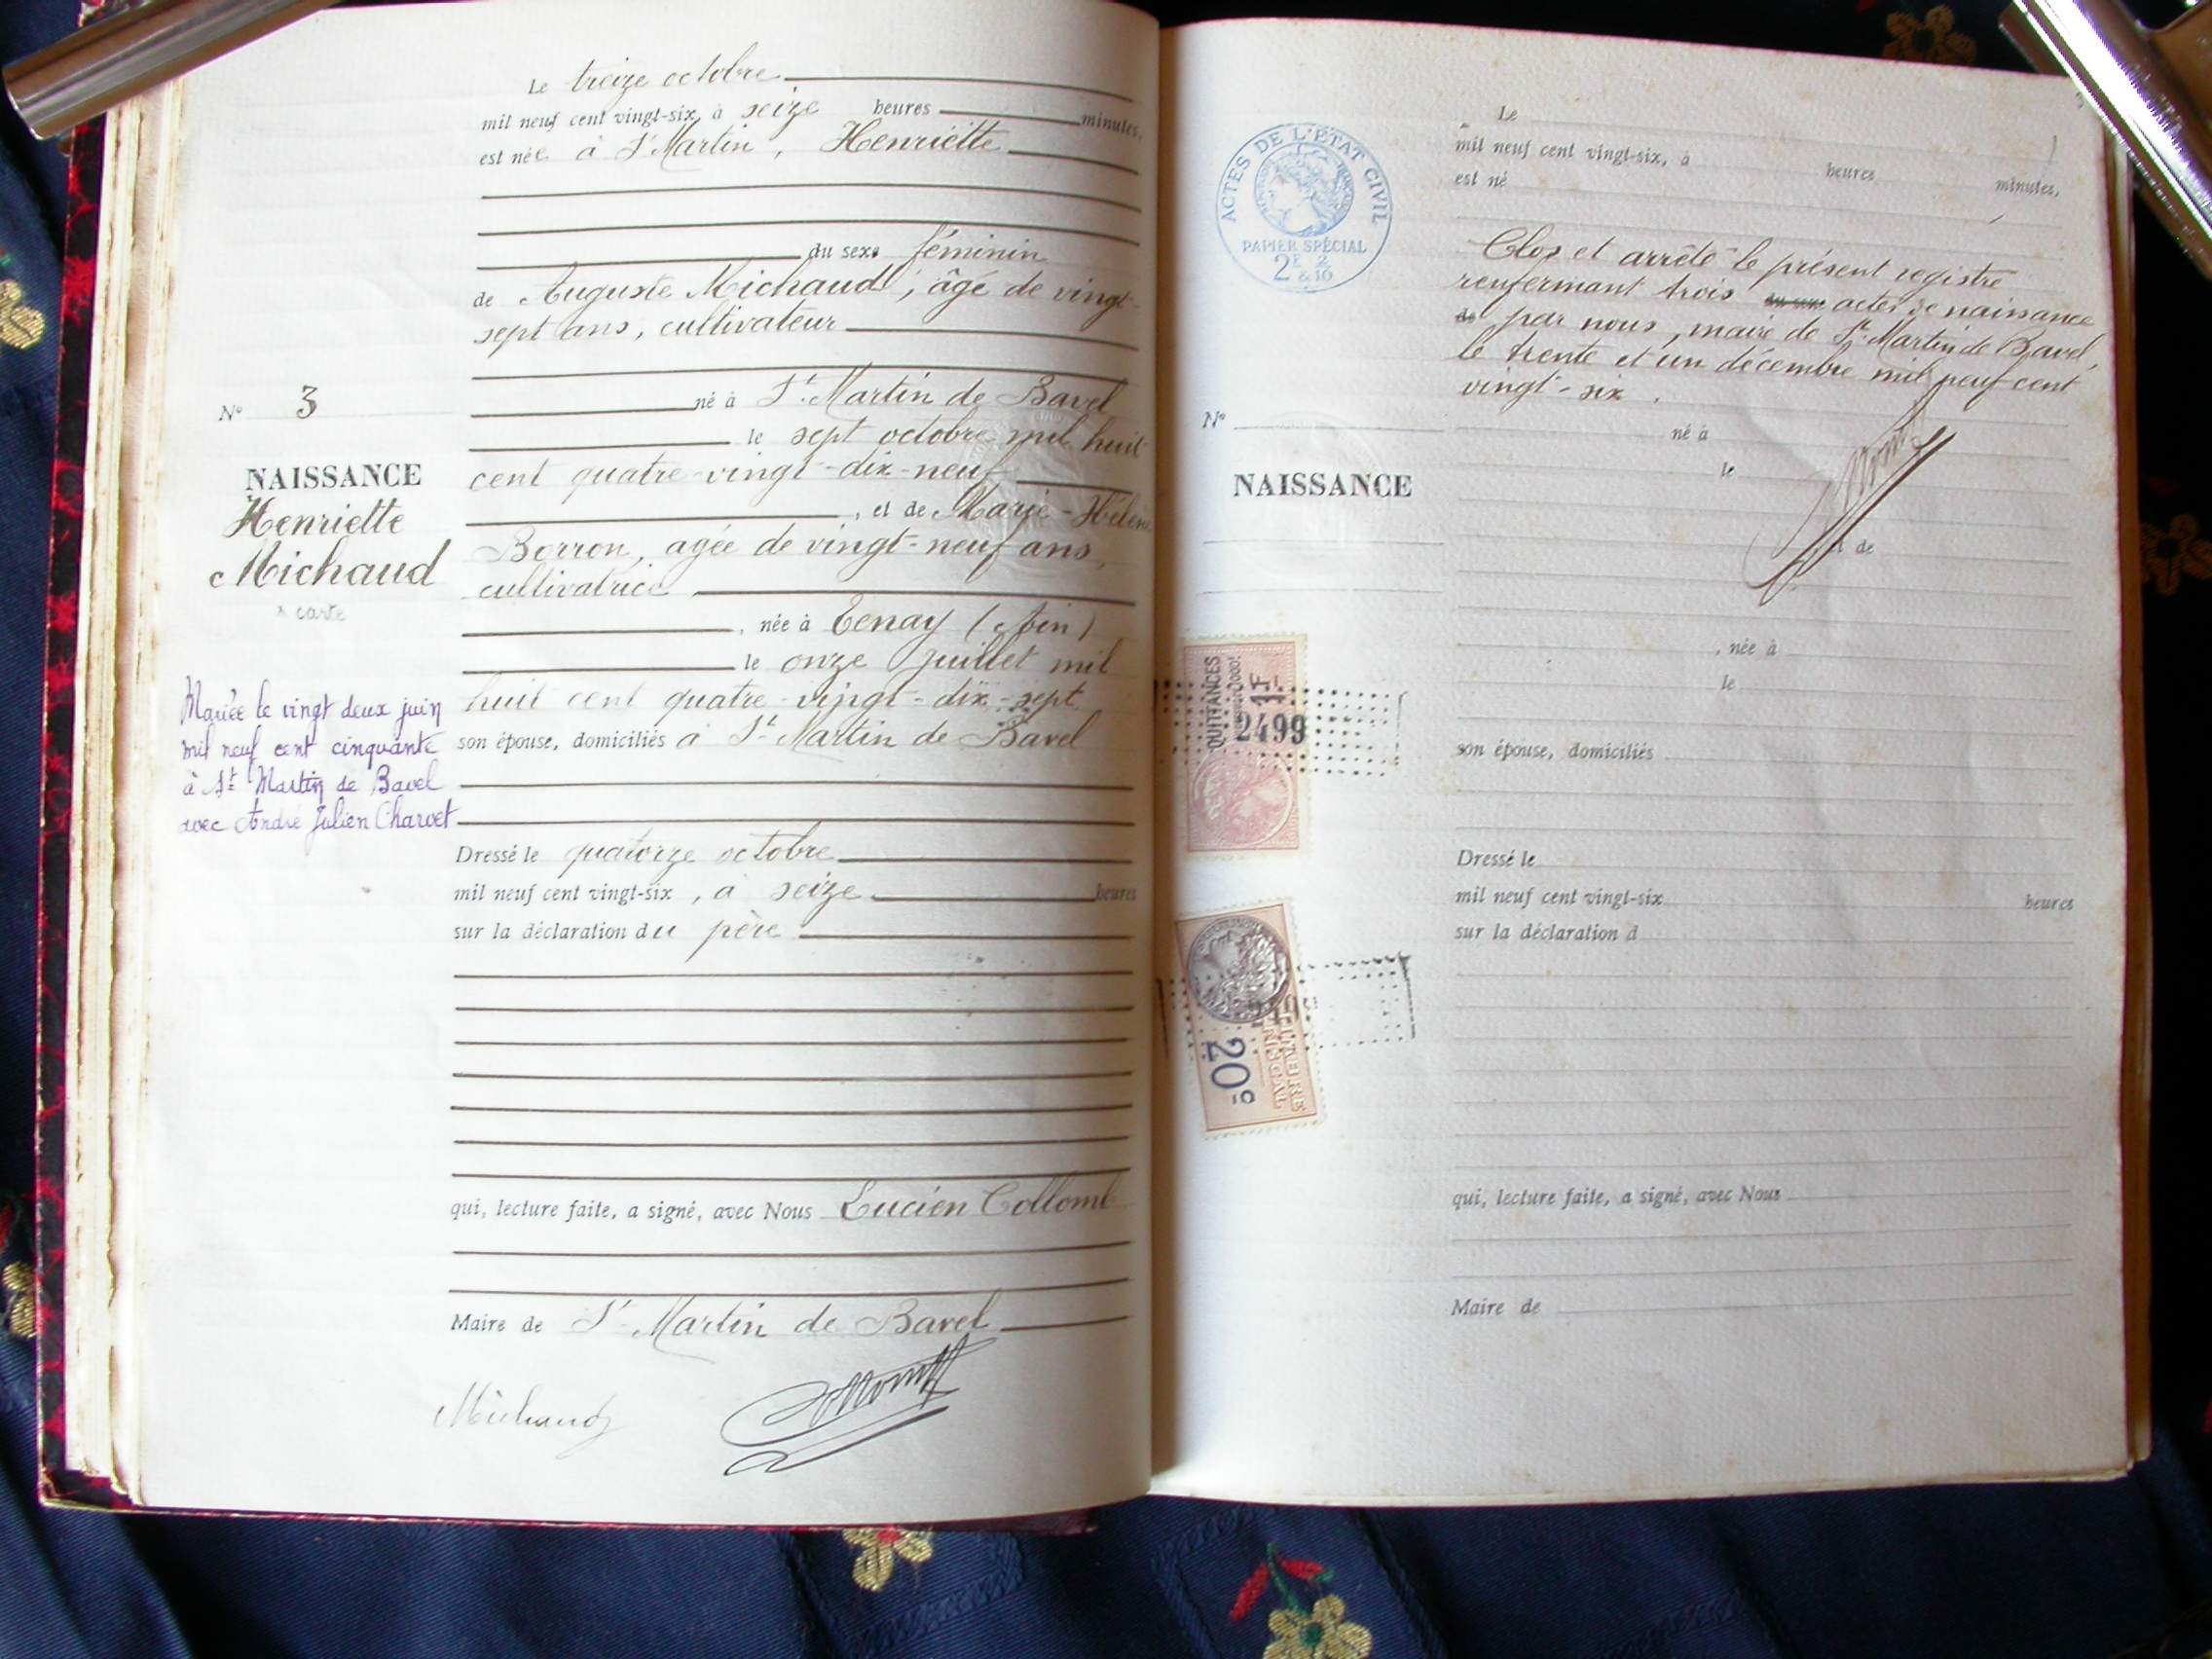 Le treize octobre
mil neuf cent vingt-six, à seize heures minutes,
est née à St Martin, Henriette
du sexe féminin
de Auguste Michaud, âgé de vingt-
sept ans, cultivateur
né à St Martin de Bavel
le sept octobre mil huit
cent quatre-vingt-dix-neuf
, et de Marie-Hélène
Borron, agée de vingt-neuf ans,
cultivatrice
, née à Tenay (Ain)
le onze juillet mil
huit cent quatre-vingt-dix-sept
son épouse, domiciliés à St Martin de Bavel
Dressé le quatorze octobre
mil neuf cent vingt-six, à seize heures
sur la déclaration du père
qui, lecture faite, a signé, avec Nous Lucien Collomb
Maire de St Martin de Bavel
Michaud
N° 3
NAISSANCE
Henriette
Michaud
carte
Mariée le vingt deux juin
mil neuf cent cinquante
à St Martin de Bavel
avec André Julien Charvet
ACTES DE L'ÉTAT CIVIL
PAPIER SPÉCIAL
Le
mil neuf cent vingt-six, à heures minutes,
est né
Clos et arrêté le présent registre
renfermant trois du sexe actes de naissance
de par nous, maire de St Martin de Bavel,
le trente et un décembre mil neuf cent
vingt-six.
N°
NAISSANCE
né à
le
et de
, née à
le
son épouse, domiciliés
Dressé le
mil neuf cent vingt-six heures
sur la déclaration d
qui, lecture faite, a signé, avec Nous
Maire de
QUITTANCES
1F
2499
20c
FISCAL